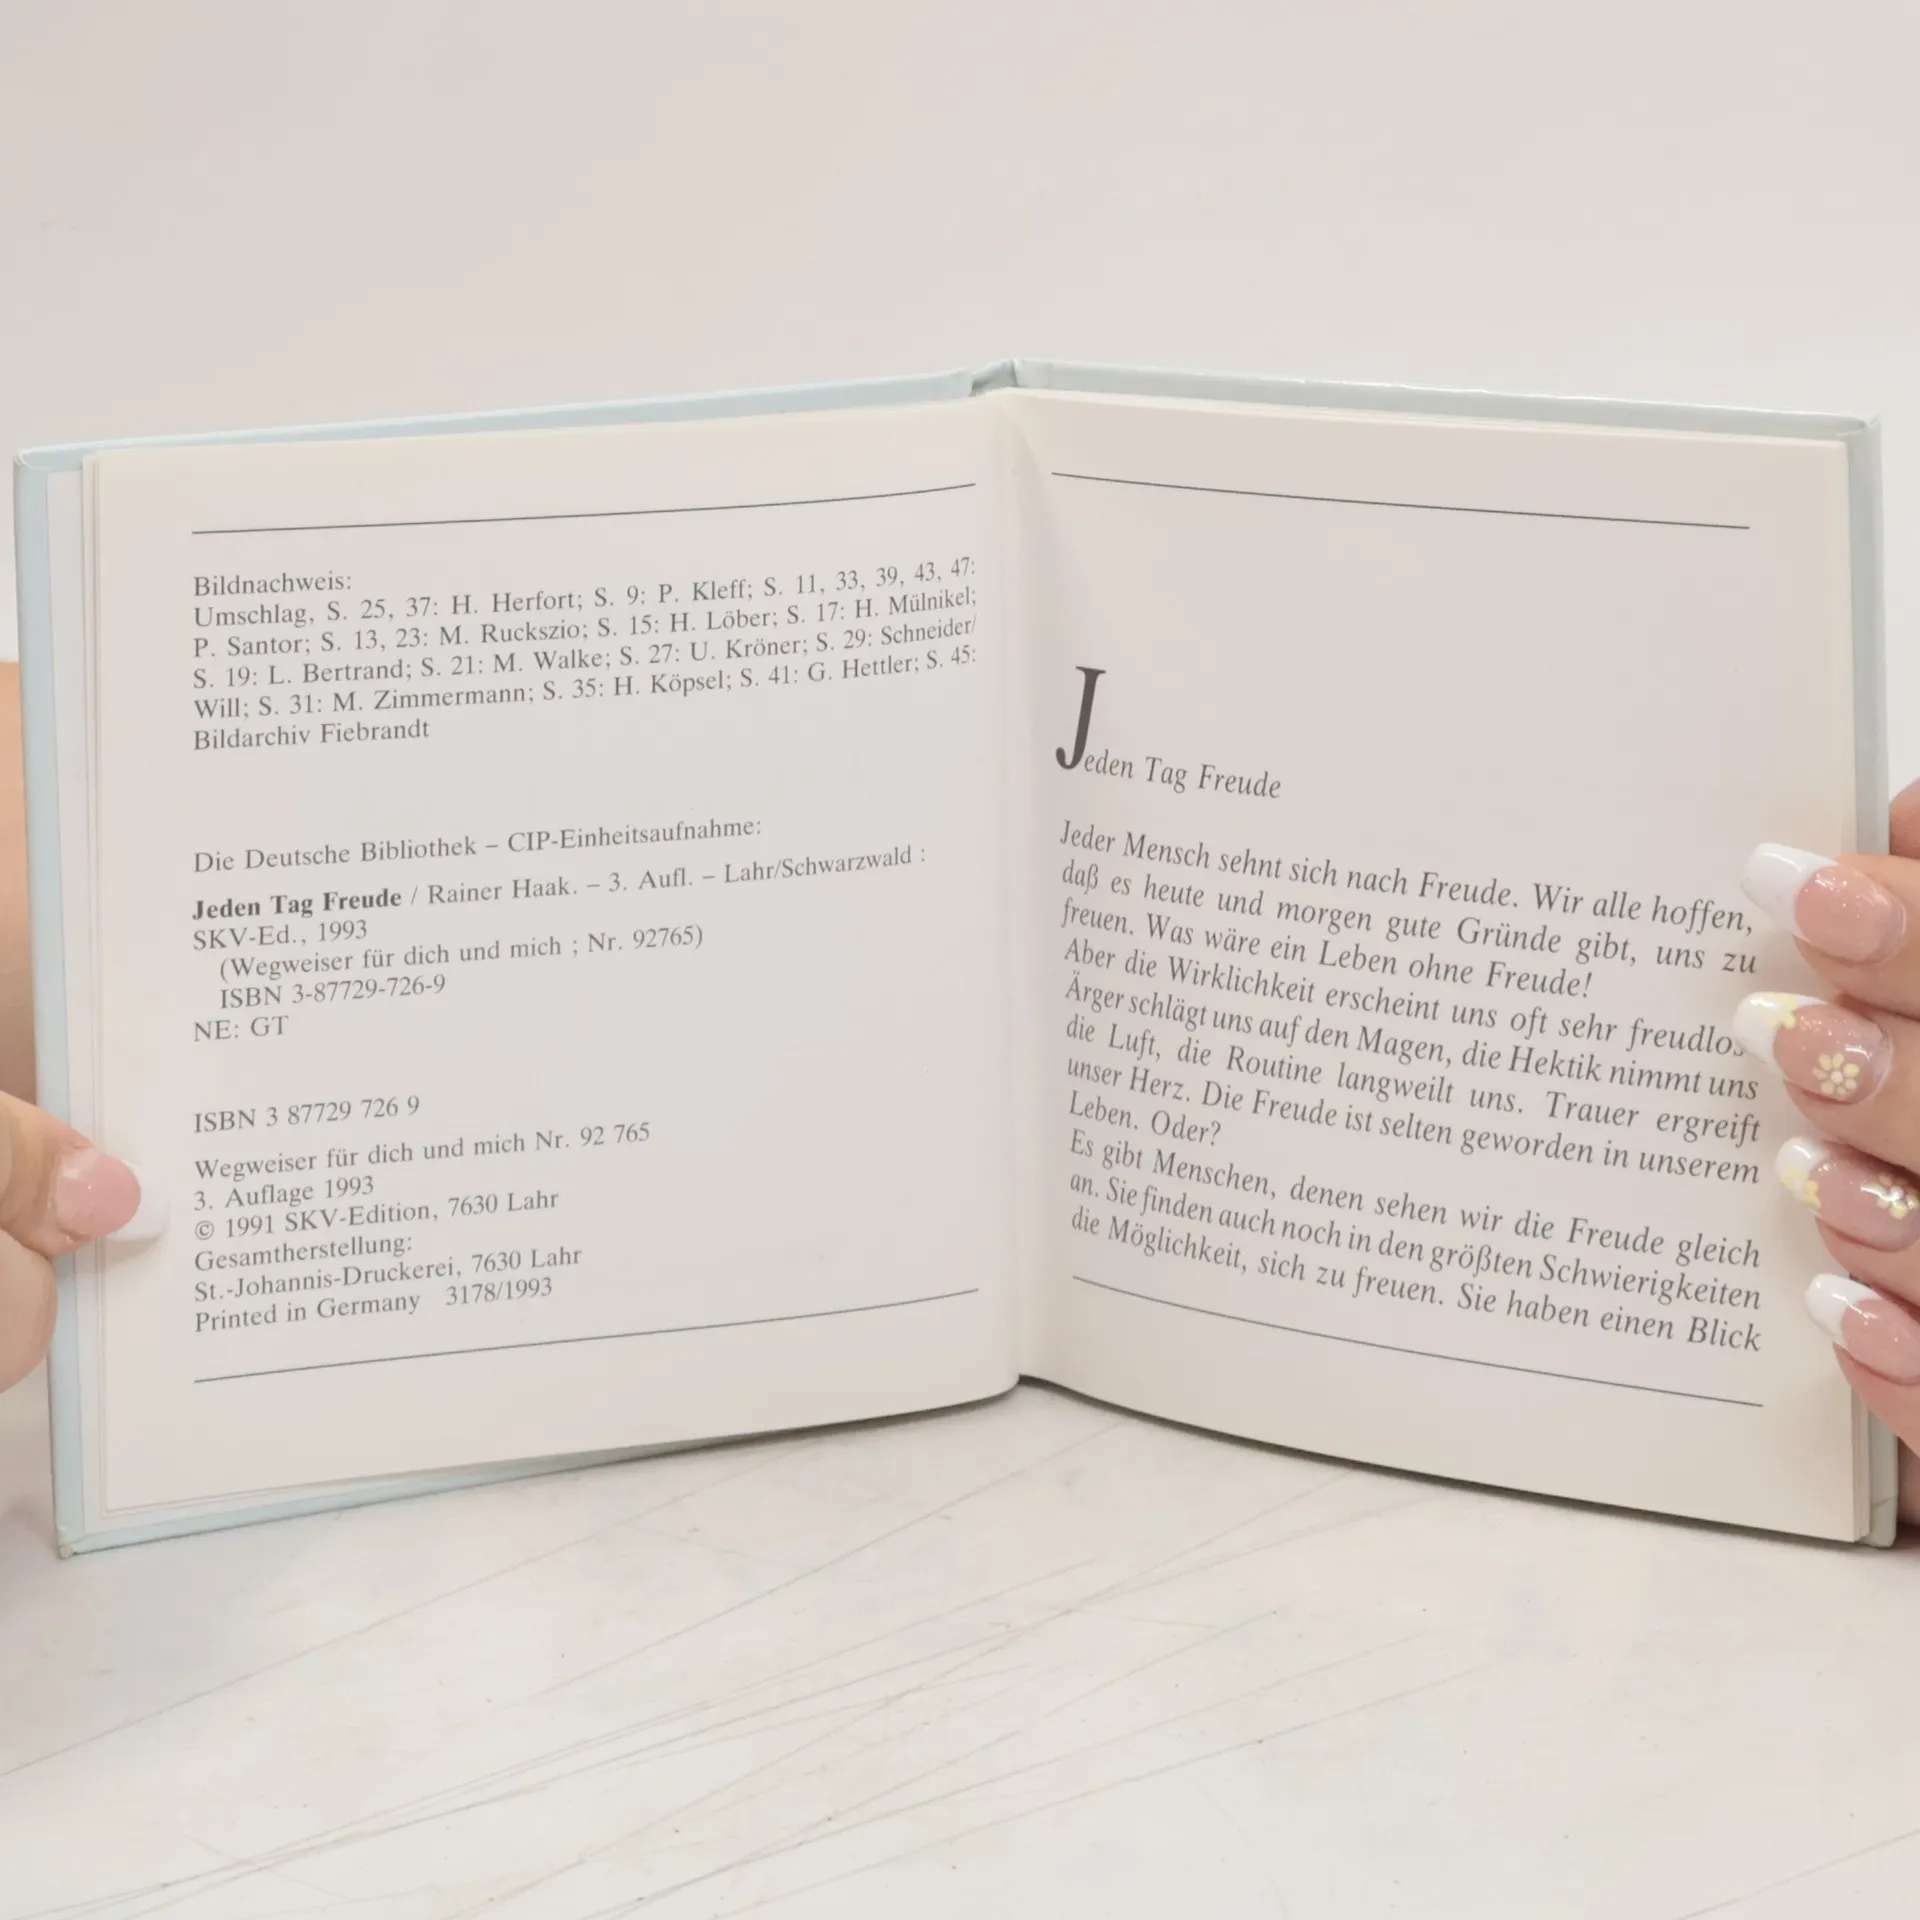 Bildnachweis:
Umschlag, S. 25, 37: H. Herfort; S. 9: P. Kleff; S. 11, 33, 39, 43, 47:
P. Santor; S. 13, 23: M. Ruckszio; S. 15: H. Löber; S. 17: H. Mülnikel;
S. 19: L. Bertrand; S. 21: M. Walke; S. 27: U. Kröner; S. 29: Schneider/
Will; S. 31: M. Zimmermann; S. 35: H. Köpsel; S. 41: G. Hettler; S. 45:
Bildarchiv Fiebrandt
Die Deutsche Bibliothek – CIP-Einheitsaufnahme:
Jeden Tag Freude / Rainer Haak. – 3. Aufl. – Lahr/Schwarzwald :
SKV-Ed., 1993
(Wegweiser für dich und mich ; Nr. 92765)
ISBN 3-87729-726-9
NE: GT
ISBN 3 87729 726 9
Wegweiser für dich und mich Nr. 92 765
3. Auflage 1993
© 1991 SKV-Edition, 7630 Lahr
Gesamtherstellung:
St.-Johannis-Druckerei, 7630 Lahr
Printed in Germany 3178/1993
Jeden Tag Freude
Jeder Mensch sehnt sich nach Freude. Wir alle hoffen,
daß es heute und morgen gute Gründe gibt, uns zu
freuen. Was wäre ein Leben ohne Freude!
Aber die Wirklichkeit erscheint uns oft sehr freudlos.
Ärger schlägt uns auf den Magen, die Hektik nimmt uns
die Luft, die Routine langweilt uns. Trauer ergreift
unser Herz. Die Freude ist selten geworden in unserem
Leben. Oder?
Es gibt Menschen, denen sehen wir die Freude gleich
an. Sie finden auch noch in den größten Schwierigkeiten
die Möglichkeit, sich zu freuen. Sie haben einen Blick